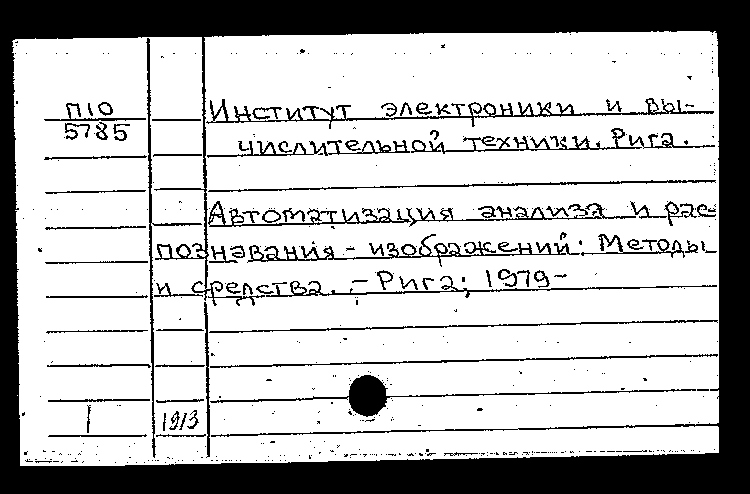 П10
5785
Институт электроники и вы-
числительной техники. Рига.
Автоматизация анализа и рас-
познавания - изображений: Методы
и средства. - Рига; 1979-
1 1913